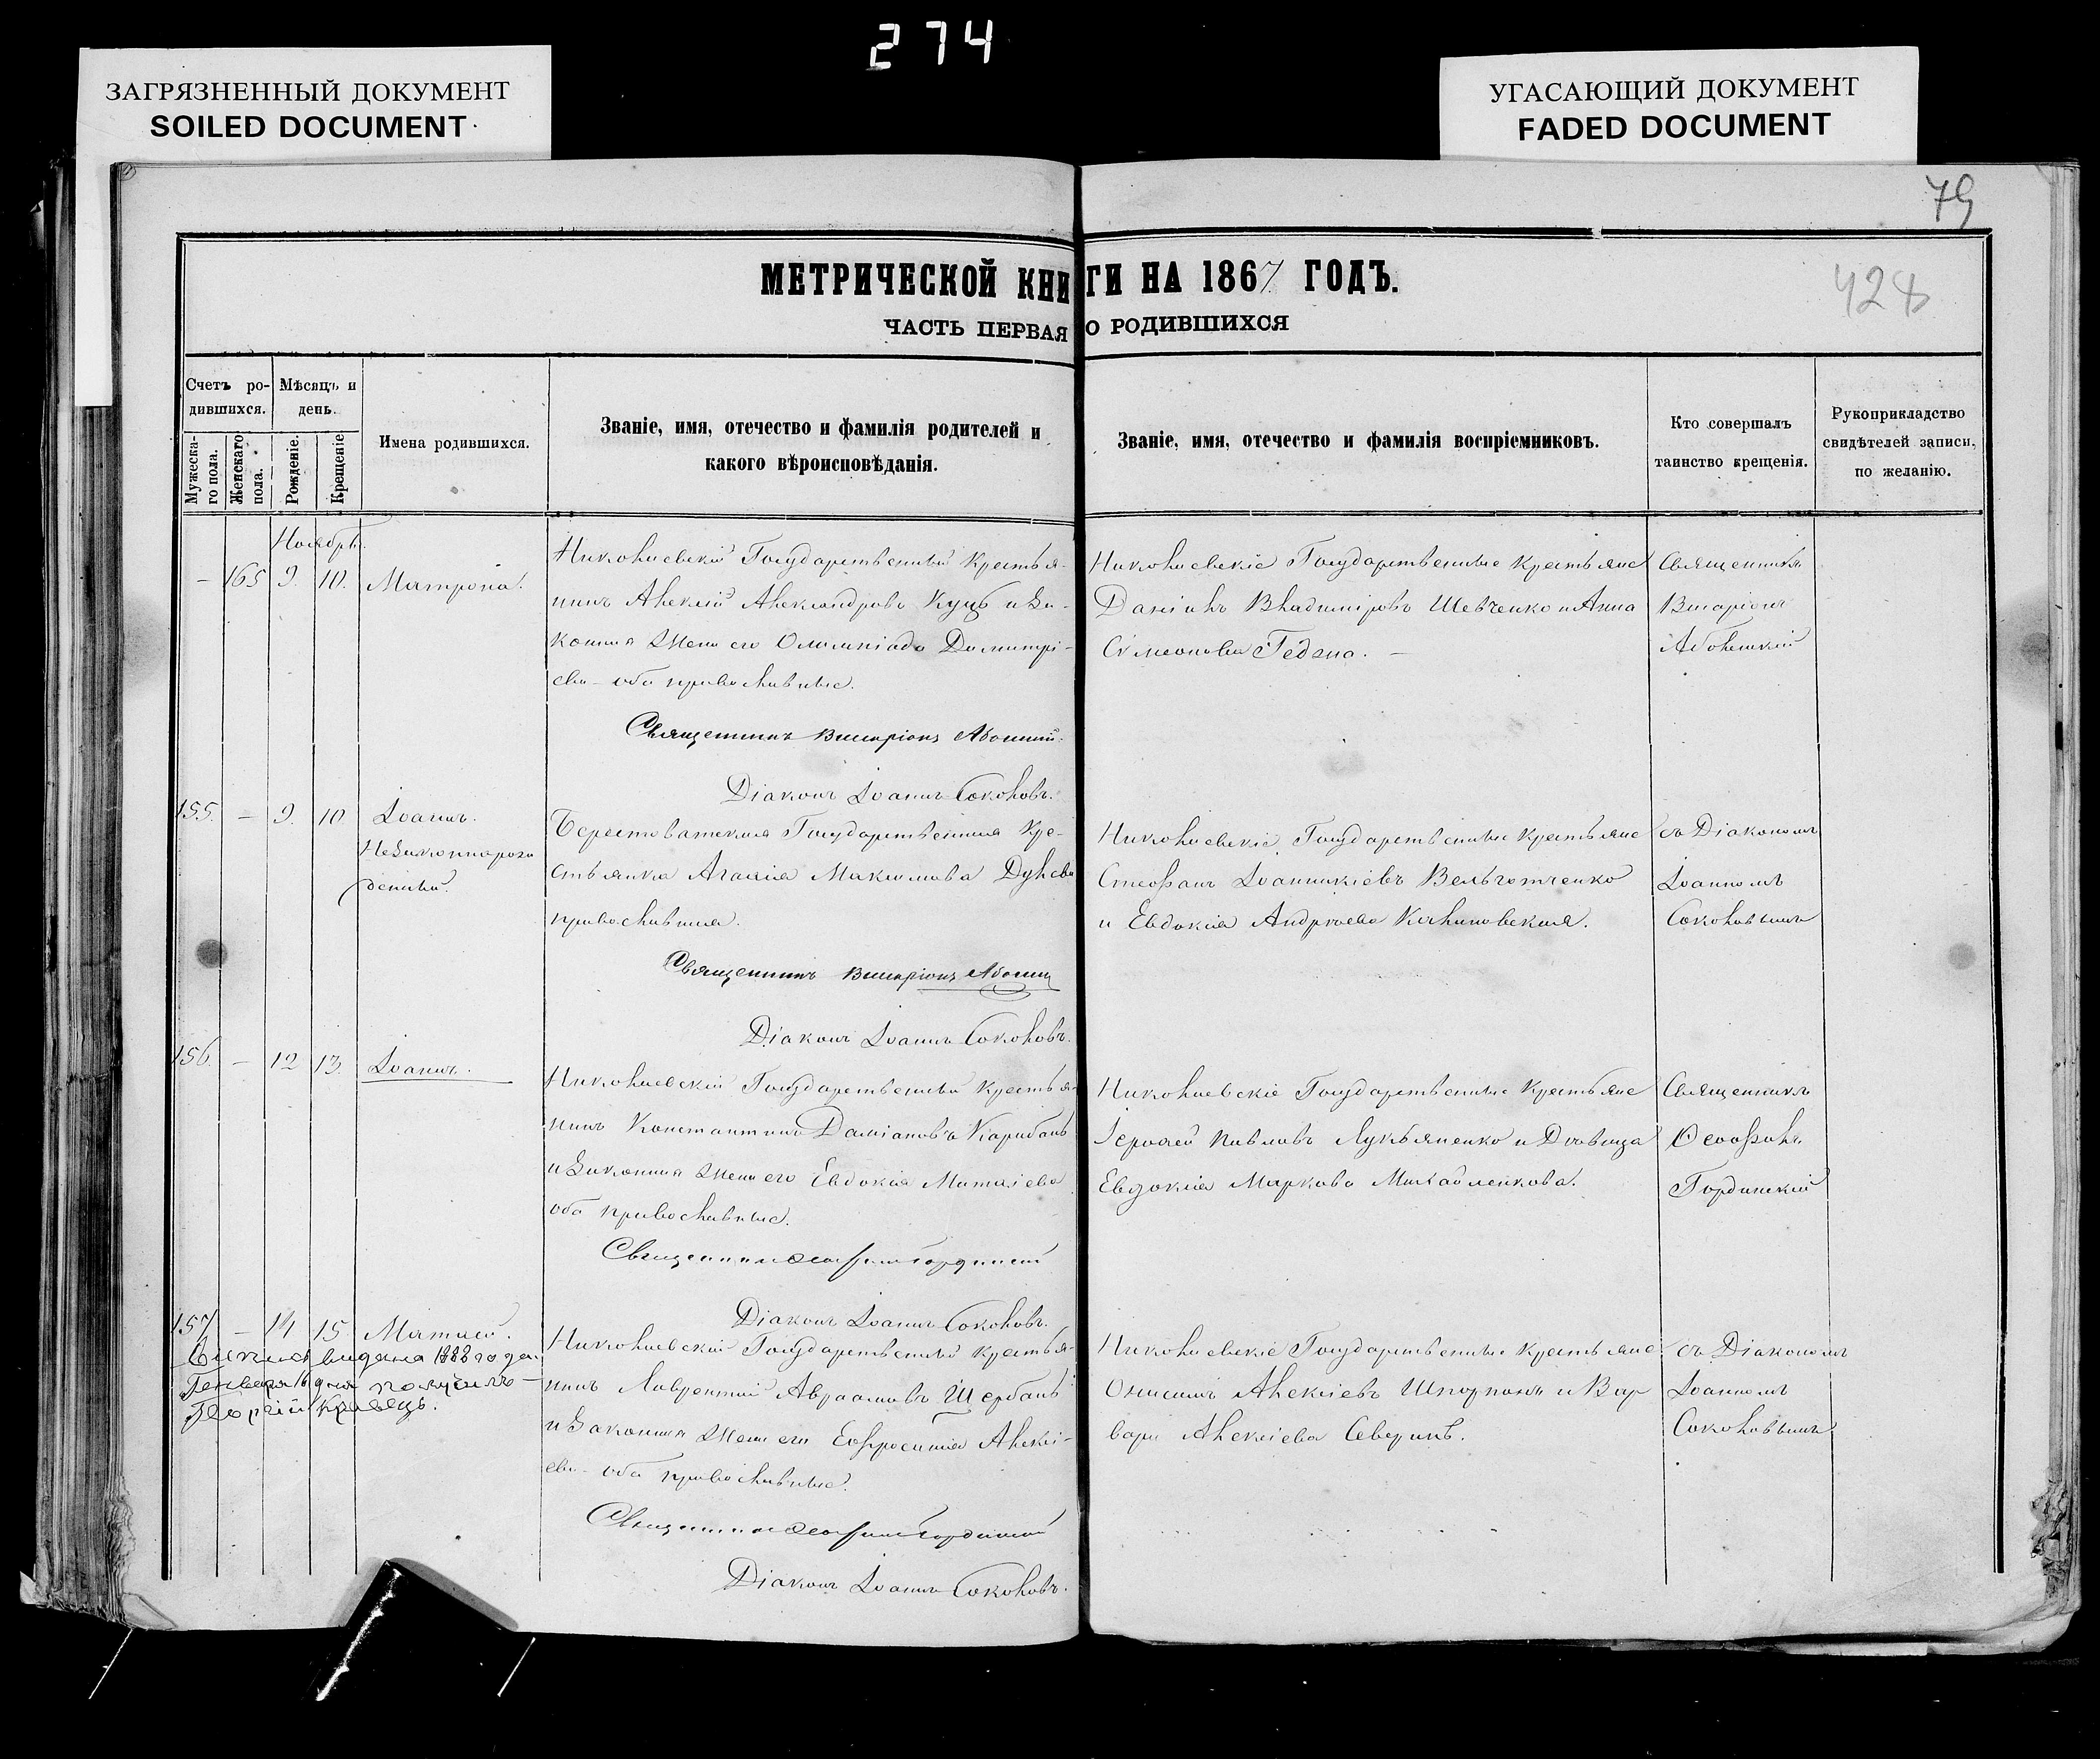 274
ЗАГРЯЗНЕННЫЙ ДОКУМЕНТ
SOILED DOCUMENT
УГАСАЮЩИЙ ДОКУМЕНТ
FADED DOCUMENT
79
МЕТРИЧЕСКОЙ КНИГИ НА 1867 ГОДЪ.
428
ЧАСТЬ ПЕРВАЯ О РОДИВШИХСЯ
Счетъ ро-
дившихся.
Мужеска-
го пола.
Женскаго
пола.
Мѣсяцъ и
день.
Рожденіе.
Крещеніе
Имена родившихся.
Званіе, имя, отечество и фамилія родителей и
какого вѣроисповѣданія.
Званіе, имя, отечество и фамилія воспріемниковъ.
Кто совершалъ
таинство крещенія.
Рукоприкладство
свидѣтелей записи,
по желанію.
Ноябрь.
– 165 9. 10. Матрона.
Николаевскій Государственный Крестья-
нинъ Алексій Александровъ Куцъ и За-
конная жена его Олимпіада Димитрі-
ева – оба православные.
Священникъ Виссаріонъ
Діаконъ Іоаннъ Соколовъ.
Николаевскіе Государственные Крестьяне
Даніилъ Владиміровъ Шевченко и Анна
Сѵмеонова Гедзна. –
Священникъ
Висаріонъ
155. – 9. 10. Іоаннъ.
Незаконнорож
денный.
Берестоватская Государственная Кре-
стьянка Агафія Максимова
православная.
Священникъ Виссаріонъ
Діаконъ Іоаннъ Соколовъ.
Николаевскіе Государственные Крестьяне
Стефанъ Іоанникіевъ
и Евдокія Андреева Калиновская.
съ Діакономъ
Іоанномъ
Соколовымъ
156. – 12 13. Іоаннъ.
Николаевскій Государственный Крестья-
нинъ Константинъ Даміановъ Карибанъ
и Законная жена его Евдокія Матфіева
оба православные.
Священникъ Феофилъ Гординскій
Діаконъ Іоаннъ Соколовъ.
Николаевскіе Государственные Крестьяне
Іерофей Павловъ Лукьяненко и Дѣвица
Евдокія Маркова Михайленкова.
Священникъ
Феофилъ
Гординскій
157 – 14 15 Матфей.
видана 1888 года
Генваря 16 дня получилъ –
Георгій Кравецъ.
Николаевскій Государственный Крестья-
нинъ Лаврентій Авраамовъ Щербань
и Законная жена его Евфросинія Алексі-
ева – оба православные.
Священникъ Феофилъ Гординскій
Діаконъ Іоаннъ Соколовъ.
Николаевскіе Государственные Крестьяне
Онисимъ Алексіевъ и Вар
вара Алексіева Северинъ.
съ Діакономъ
Іоанномъ
Соколовымъ